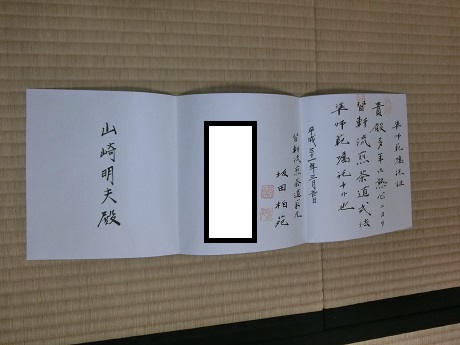 準師範嘱託証
貴殿多年の熱心ニヨリ
皆軒流煎茶道式法
準師範嘱託する也
平成三十一年三月吉日
皆軒流煎茶道家元
坂田柏苑
山崎明夫殿